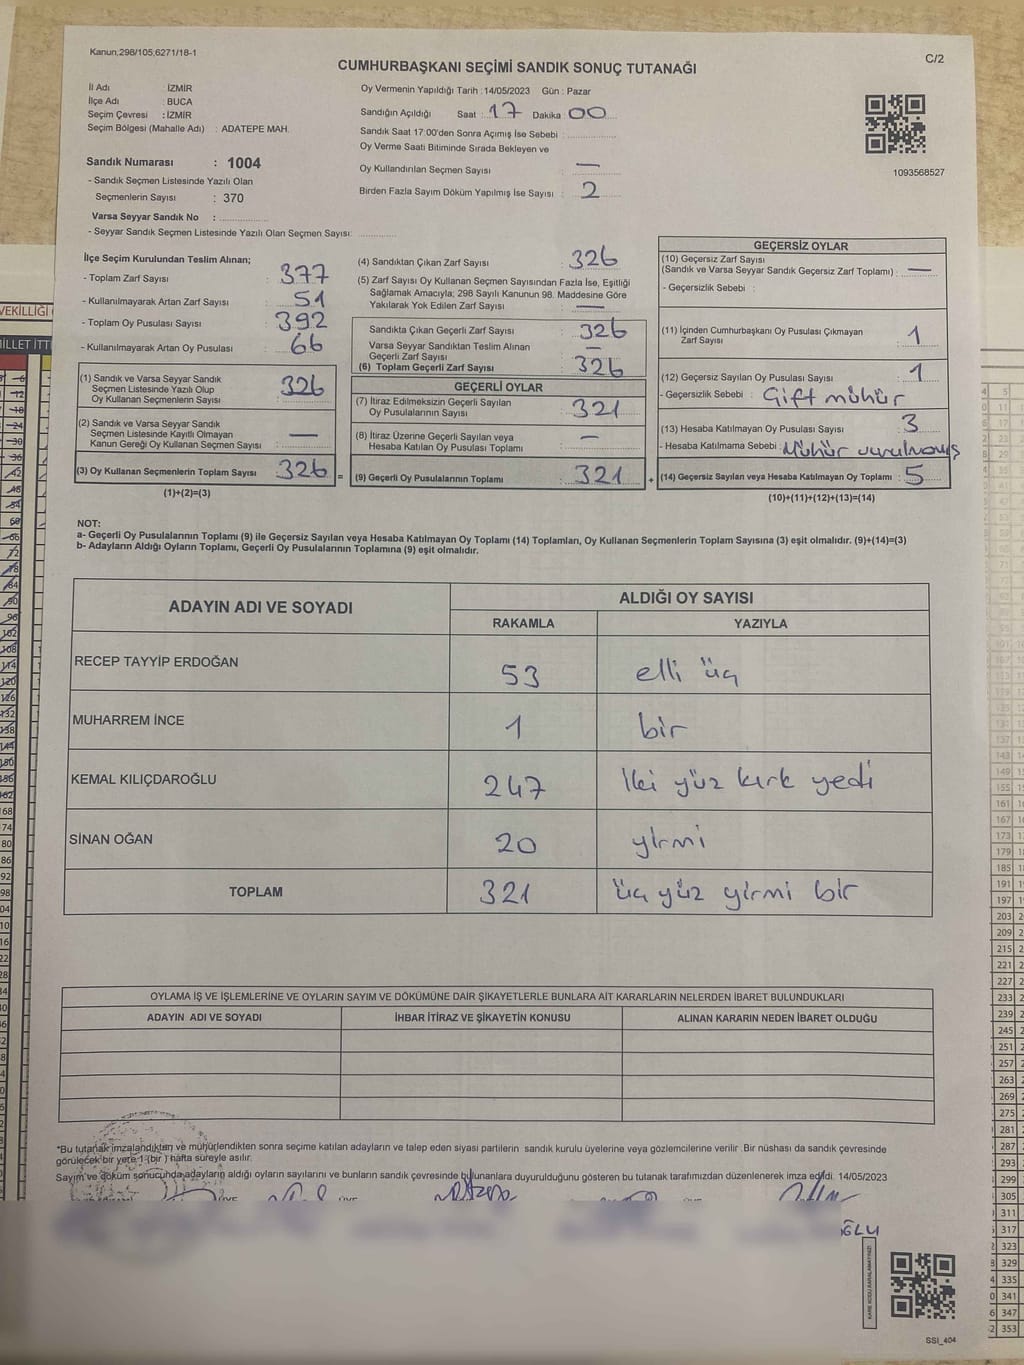 Kanun,298/105,6271/18-1
C/2
CUMHURBAŞKANI SEÇİMİ SANDIK SONUÇ TUTANAĞI
İl Adı : İZMİR
İlçe Adı : BUCA
Seçim Çevresi : İZMİR
Seçim Bölgesi (Mahalle Adı) : ADATEPE MAH.
Sandık Numarası : 1004
- Sandık Seçmen Listesinde Yazılı Olan
Seçmenlerin Sayısı : 370
Varsa Seyyar Sandık No :
- Seyyar Sandık Seçmen Listesinde Yazılı Olan Seçmen Sayısı:
Oy Vermenin Yapıldığı Tarih : 14/05/2023 Gün : Pazar
Sandığın Açıldığı Saat : 17 Dakika 00
Sandık Saat 17:00'den Sonra Açımış İse Sebebi :
Oy Verme Saati Bitiminde Sırada Bekleyen ve
Oy Kullandırılan Seçmen Sayısı : —
Birden Fazla Sayım Döküm Yapılmış İse Sayısı : 2
1093568527
İlçe Seçim Kurulundan Teslim Alınan;
- Toplam Zarf Sayısı : 377
- Kullanılmayarak Artan Zarf Sayısı : 51
- Toplam Oy Pusulası Sayısı : 392
- Kullanılmayarak Artan Oy Pusulası : 66
(1) Sandık ve Varsa Seyyar Sandık
Seçmen Listesinde Yazılı Olup
Oy Kullanan Seçmenlerin Sayısı : 326
(2) Sandık ve Varsa Seyyar Sandık
Seçmen Listesinde Kayıtlı Olmayan
Kanun Gereği Oy Kullanan Seçmen Sayısı : —
(3) Oy Kullanan Seçmenlerin Toplam Sayısı : 326 =
(1)+(2)=(3)
(4) Sandıktan Çıkan Zarf Sayısı : 326
(5) Zarf Sayısı Oy Kullanan Seçmen Sayısından Fazla İse, Eşitliği
Sağlamak Amacıyla; 298 Sayılı Kanunun 98. Maddesine Göre
Yakılarak Yok Edilen Zarf Sayısı : —
Sandıkta Çıkan Geçerli Zarf Sayısı : 326
Varsa Seyyar Sandıktan Teslim Alınan
Geçerli Zarf Sayısı : —
(6) Toplam Geçerli Zarf Sayısı : 326
GEÇERLİ OYLAR
(7) İtiraz Edilmeksizin Geçerli Sayılan
Oy Pusulalarının Sayısı : 321
(8) İtiraz Üzerine Geçerli Sayılan veya
Hesaba Katılan Oy Pusulası Toplamı : —
(9) Geçerli Oy Pusulalarının Toplamı : 321 +
GEÇERSİZ OYLAR
(10) Geçersiz Zarf Sayısı
(Sandık ve Varsa Seyyar Sandık Geçersiz Zarf Toplamı) : —
- Geçersizlik Sebebi :
(11) İçinden Cumhurbaşkanı Oy Pusulası Çıkmayan
Zarf Sayısı : 1
(12) Geçersiz Sayılan Oy Pusulası Sayısı : 1
- Geçersizlik Sebebi : Çift mühür
(13) Hesaba Katılmayan Oy Pusulası Sayısı : 3
- Hesaba Katılmama Sebebi : Mühür vurulmamış
(14) Geçersiz Sayılan veya Hesaba Katılmayan Oy Toplamı : 5
(10)+(11)+(12)+(13)=(14)
NOT:
a- Geçerli Oy Pusulalarının Toplamı (9) ile Geçersiz Sayılan veya Hesaba Katılmayan Oy Toplamı (14) Toplamları, Oy Kullanan Seçmenlerin Toplam Sayısına (3) eşit olmalıdır. (9)+(14)=(3)
b- Adayların Aldığı Oyların Toplamı, Geçerli Oy Pusulalarının Toplamına (9) eşit olmalıdır.
ADAYIN ADI VE SOYADI
ALDIĞI OY SAYISI
RAKAMLA YAZIYLA
RECEP TAYYİP ERDOĞAN 53 elli üç
MUHARREM İNCE 1 bir
KEMAL KILIÇDAROĞLU 247 İki yüz kırk yedi
SİNAN OĞAN 20 yirmi
TOPLAM 321 üç yüz yirmi bir
OYLAMA İŞ VE İŞLEMLERİNE VE OYLARIN SAYIM VE DÖKÜMÜNE DAİR ŞİKAYETLERLE BUNLARA AİT KARARLARIN NELERDEN İBARET BULUNDUKLARI
ADAYIN ADI VE SOYADI İHBAR İTİRAZ VE ŞİKAYETİN KONUSU ALINAN KARARIN NEDEN İBARET OLDUĞU
*Bu tutanak imzalandıktan ve mühürlendikten sonra seçime katılan adayların ve talep eden siyasi partilerin sandık kurulu üyelerine veya gözlemcilerine verilir. Bir nüshası da sandık çevresinde
görülecek bir yere 1 (bir ) hafta süreyle asılır.
Sayım ve döküm sonucunda adayların aldığı oyların sayılarını ve bunların sandık çevresinde bulunanlara duyurulduğunu gösteren bu tutanak tarafımızdan düzenlenerek imza edildi. 14/05/2023
ĞLU
SSI_404